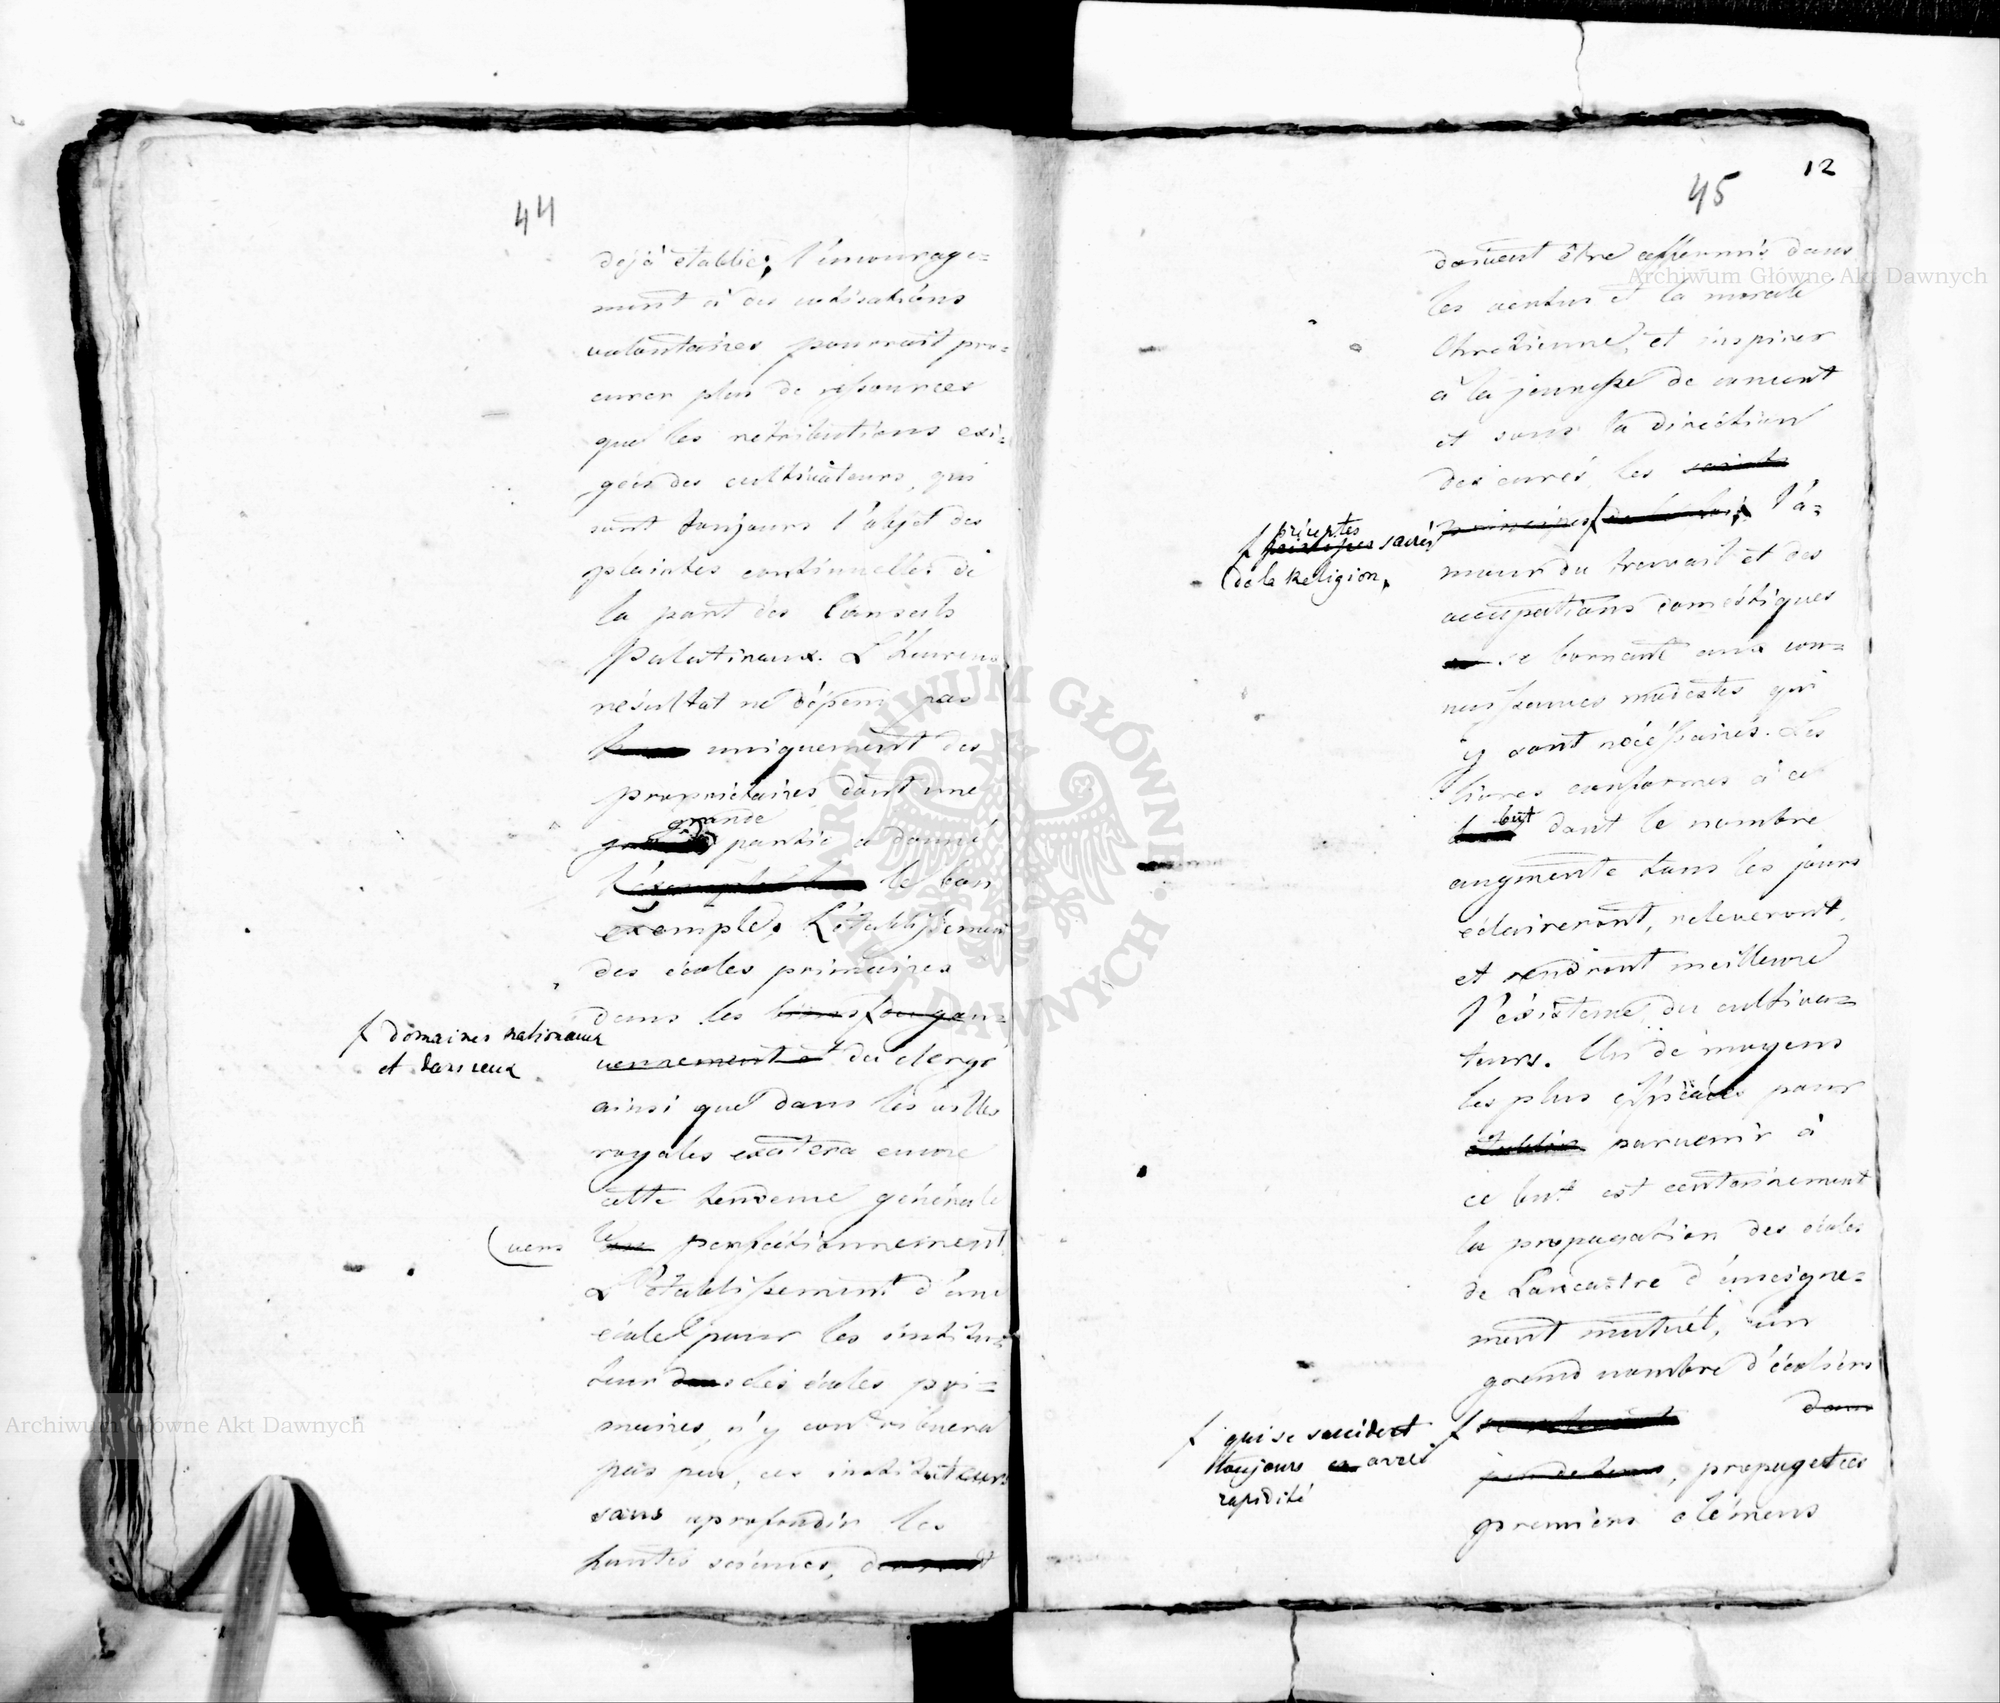 44
déjà établie; l'encourage=
ment à des cotisations
volontaires pourrait pro=
curer plus de ressources
que les retributions exi=
gées des cultivateurs, qui
sont toujours l'objet des
plaintes continuelles de
la part des Conseils
Palatinaux. L'heureux
résultat ne dépend pas
uniquement des
propriétaires dont une
grande
partie a donné
le bon
exemple. L'établissement
des écoles primaires
dans les biens du gou=
f domaines nationaux
et dans ceux
vernement et du clergé
ainsi que dans les villes
royales excitera encore
cette tendence générale
(vers le perfectionnement.
L'établissement d'une
école pour les institu=
teurs des écoles pri=
maires, n'y contribuera
pas peu, ces instituteurs
sans aprofondir les
hautes sciences, doivent
12
45
doivent être affermis dans
les vertus et la morale
Chretienne, et inspirer
à la jeunesse de concert
et sous la direction
des curés, les saints
principes f l'a=
f préceptes
principes sacrés
de la Religion,
mour du travail et des
occupations domestiques
se bornant aux con=
naissances modestes qui
y sont nécéssaires. Les
livres conformes à ce
but dont le nombre
augmente tous les jours
éclaireront, releveront,
et rendront meilleure
l'éxistence du cultiva=
teurs. Un de moyens
les plus efficaces pour
établir parvenir à
ce but est certainement
la propagation des écoles
de Lancastre d'enseigne=
ment mutuél, un
grand nombre d'écoliers
f dans
f qui se succident
toujours avec
rapidité
peu de tems, propage les
premiers élémens
Archiwum Główne Akt Dawnych
Archiwum Główne Akt Dawnych
ARCHIWUM GŁÓWNE AKT DAWNYCH